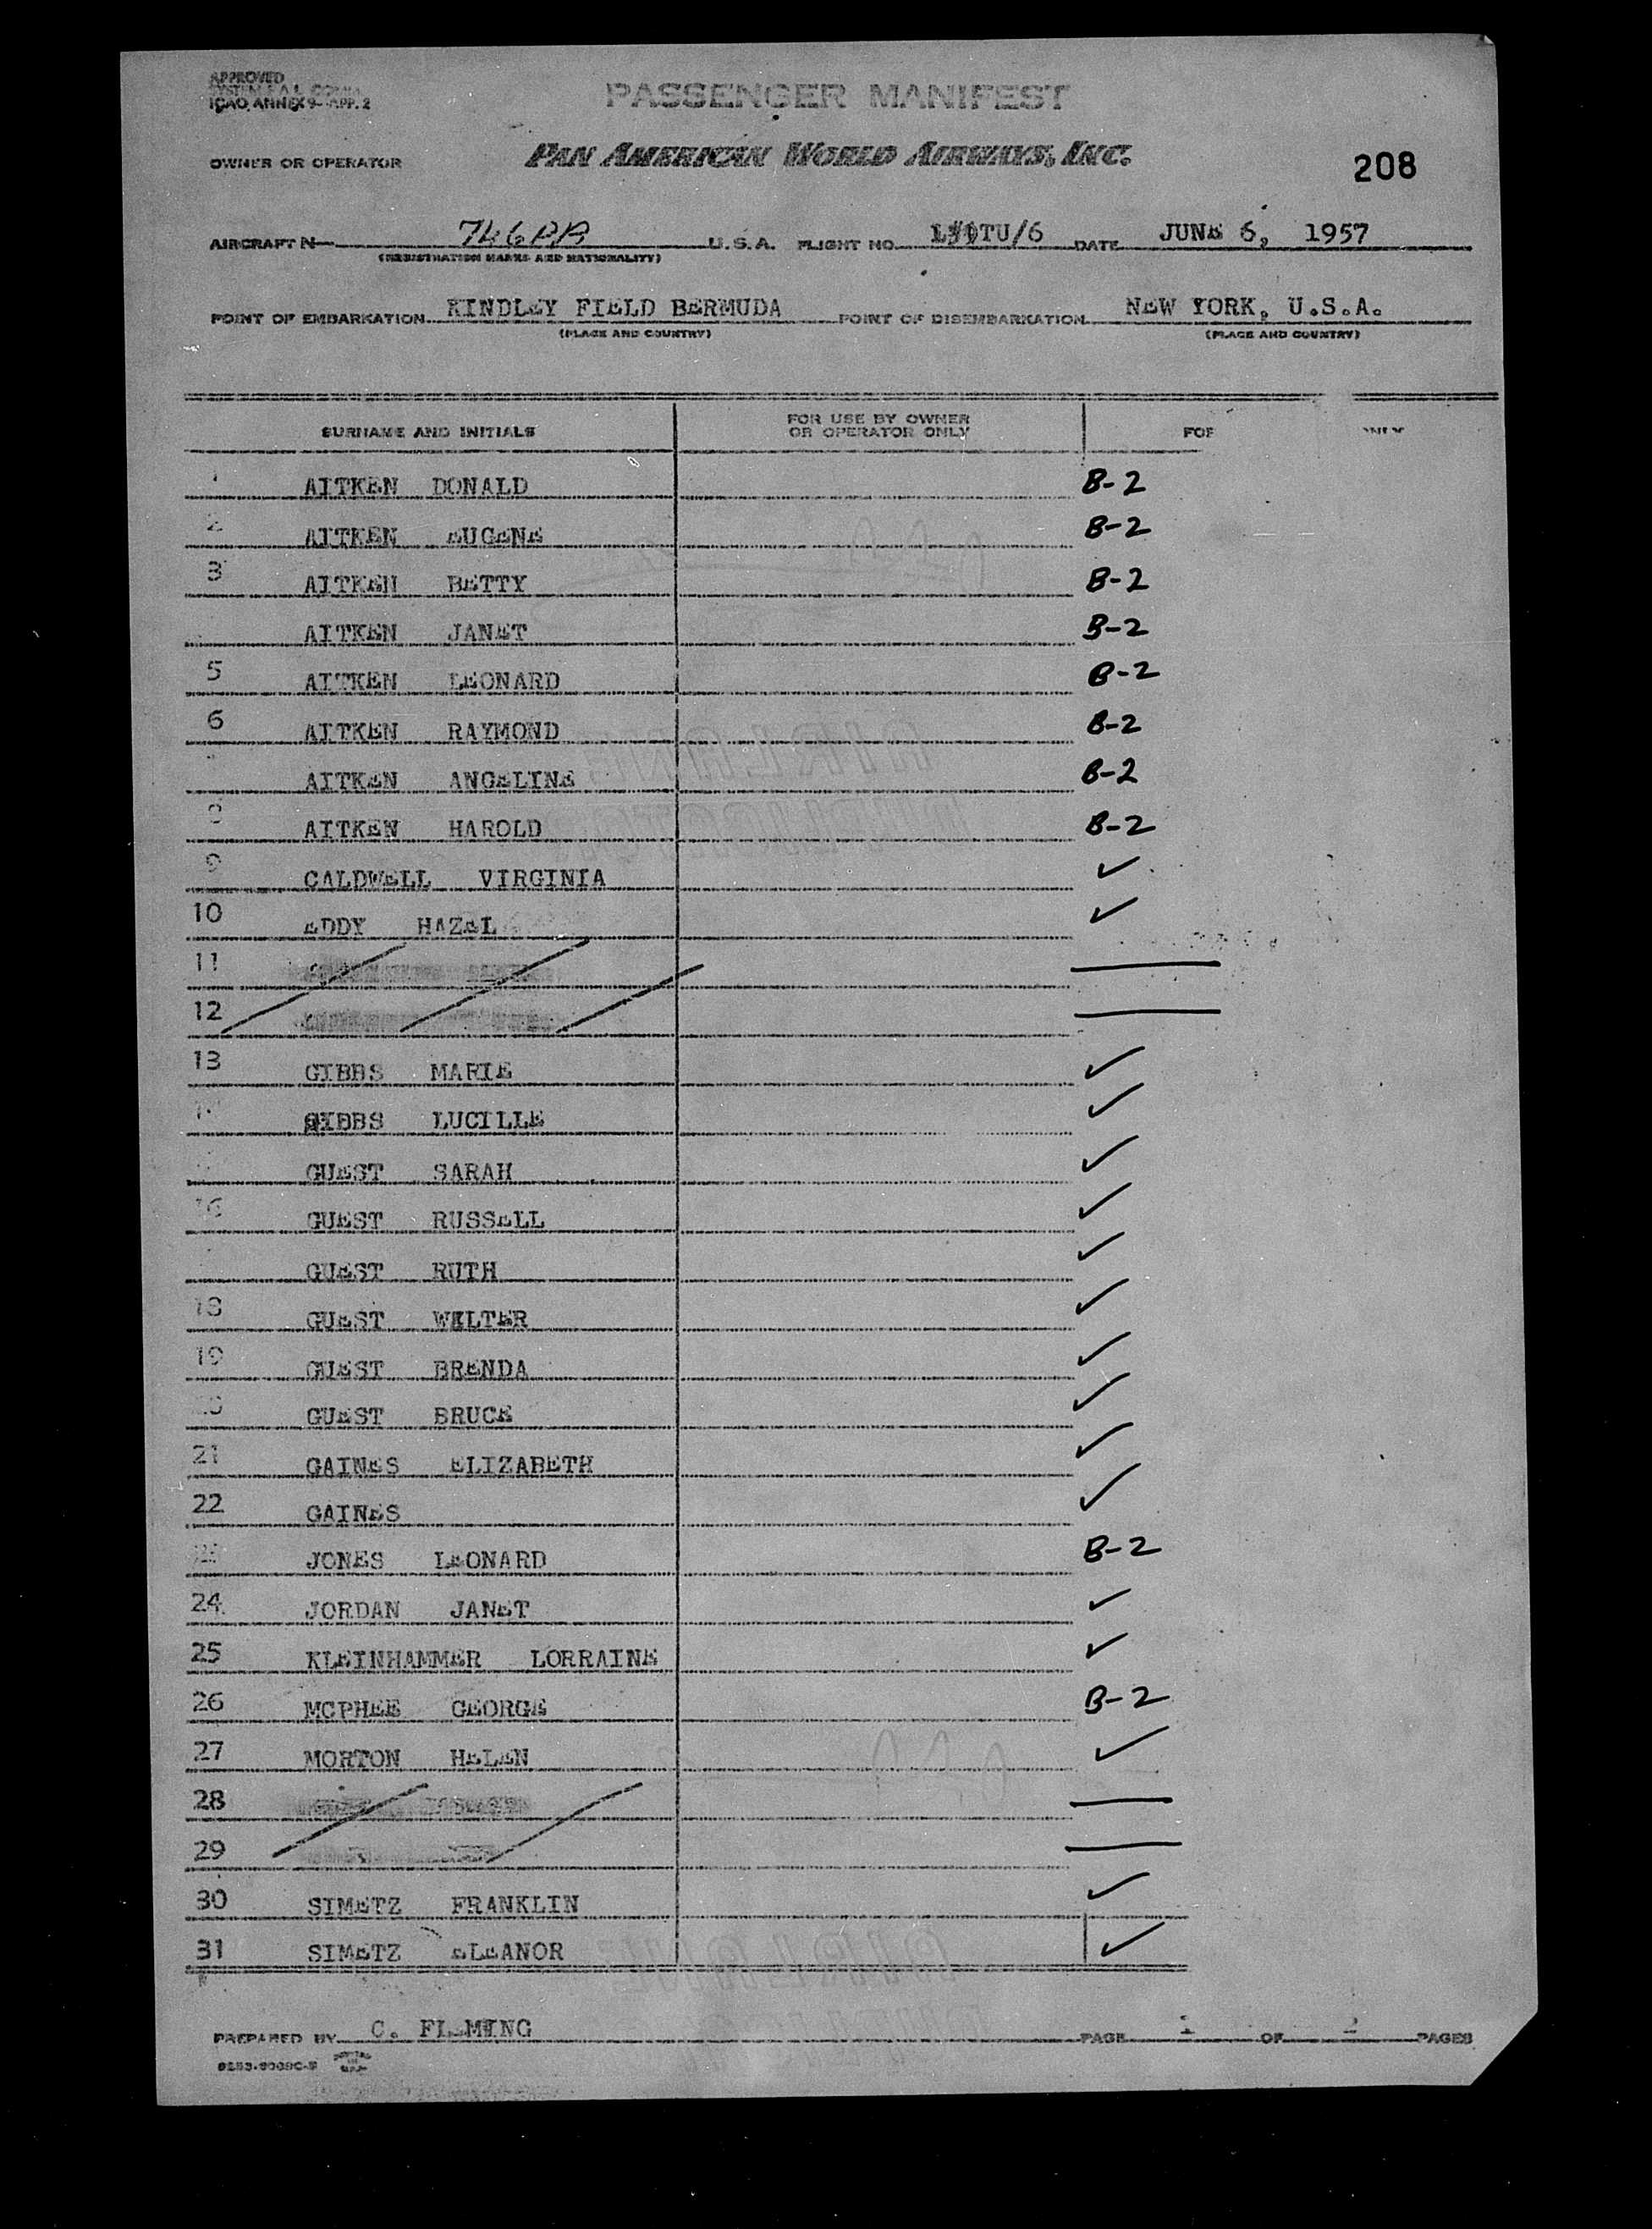 APPROVED
ICAO, ANNEX 9-APP. 2
PASSENGER MANIFEST
OWNER OR OPERATOR PAN AMERICAN WORLD AIRWAYS, INC.
208
AIRCRAFT N- U.S.A. FLIGHT NO. DATE JUNE 6, 1957
(REGISTRATION MARKS AND NATIONALITY)
POINT OF EMBARKATION KINDLEY FIELD BERMUDA POINT OF DISEMBARKATION NEW YORK, U.S.A.
(PLACE AND COUNTRY) (PLACE AND COUNTRY)
SURNAME AND INITIALS FOR USE BY OWNER OR OPERATOR ONLY FOR ONLY
AITKEN DONALD B-2
2 AITKEN EUGENE B-2
3 AITKEN BETTY B-2
AITKEN JANET B-2
5 AITKEN LEONARD B-2
6 AITKEN RAYMOND B-2
AITKEN ANGELINE B-2
8 AITKEN HAROLD B-2
9 CALDWELL VIRGINIA ✓
10 EDDY HAZEL ✓
11
12
13 GIBBS MARIE ✓
GIBBS LUCILLE ✓
GUEST SARAH ✓
16 GUEST RUSSELL ✓
GUEST RUTH ✓
18 GUEST WALTER ✓
19 GUEST BRENDA ✓
20 GUEST BRUCE ✓
21 GAINES ELIZABETH ✓
22 GAINES ✓
23 JONES LEONARD B-2
24 JORDAN JANET ✓
25 KLEINHAMMER LORRAINE ✓
26 MCPHEE GEORGE B-2
27 MORTON HELEN ✓
28
29
30 SIMETZ FRANKLIN ✓
31 SIMETZ ELEANOR ✓
PREPARED BY C. FLEMING PAGE 1 OF 2 PAGES